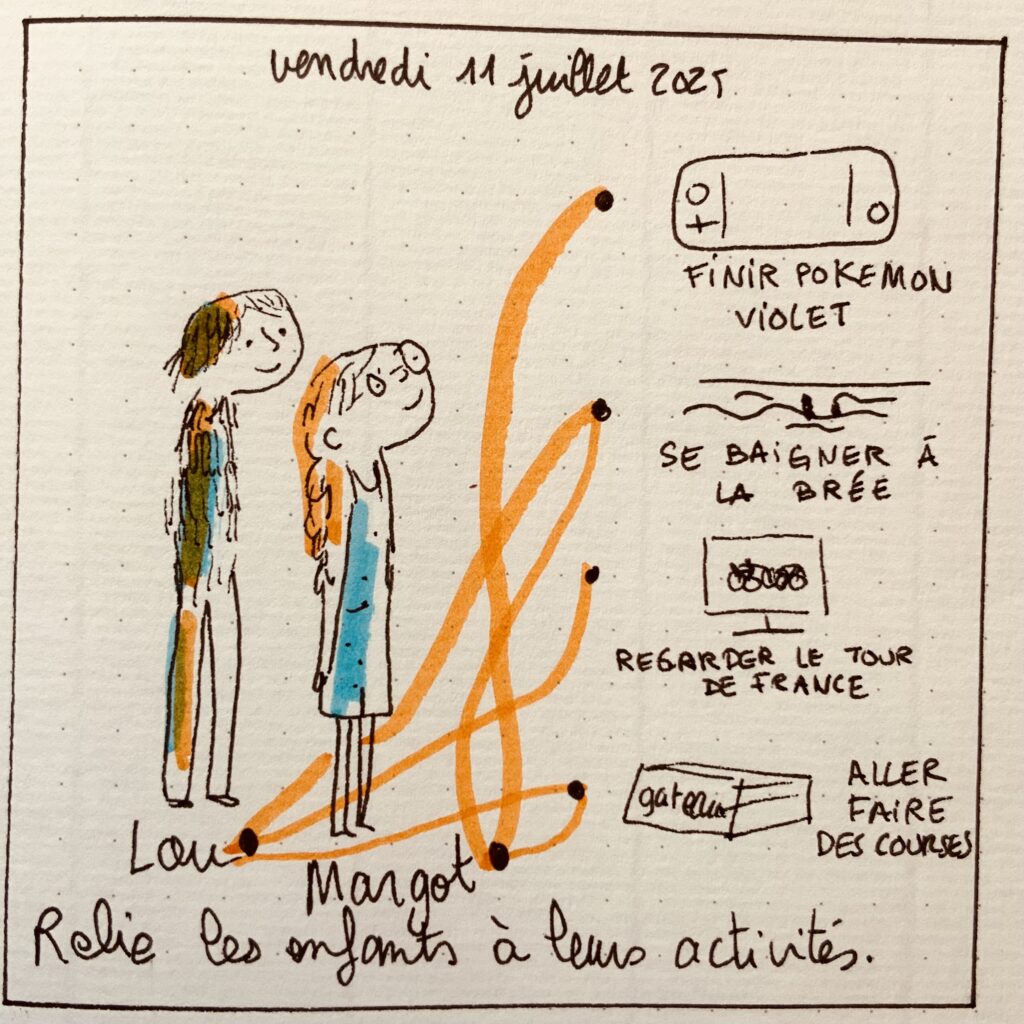 vendredi 11 juillet 2025
FINIR POKEMON
VIOLET
SE BAIGNER À
LA BRÉE
REGARDER LE TOUR
DE FRANCE
gateau
ALLER
FAIRE
DES COURSES
Lou
Margot
Relie les enfants à leurs activités.